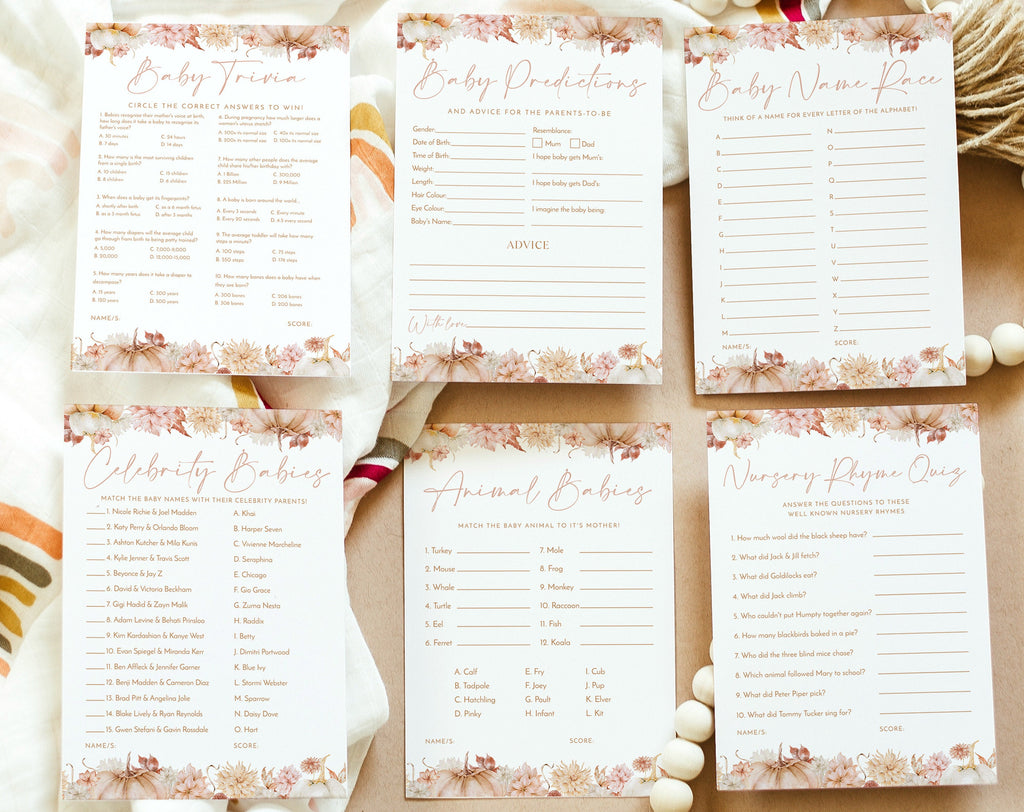 Baby Trivia
CIRCLE THE CORRECT ANSWERS TO WIN!
1. Babies recognise their mother's voice at birth,
how long does it take a baby to recognise its
father's voice?
A. 30 minutes C. 24 hours
B. 7 days D. 14 days
2. How many is the most surviving children
from a single birth?
A. 10 children C. 15 children
B. 8 children D. 6 children
3. When does a baby get its fingerprints?
A. shortly after birth C. as a 6 month fetus
B. as a 3 month fetus D. after 3 months
4. How many diapers will the average child
go through from birth to being potty trained?
A. 5,000 C. 7,000-9,000
B. 20,000 D. 12,000-15,000
5. How many years does it take a diaper to
decompose?
A. 15 years C. 300 years
B. 150 years D. 500 years
6. During pregnancy how much larger does a
women's uterus stretch?
A. 500x its normal size C. 40x its normal size
B. 200x its normal size D. 100x its normal size
7. How many other people does the average
child share his/her birthday with?
A. 1 Billion C. 300,000
B. 225 Million D. 9 Million
8. A baby is born around the world...
A. Every 3 seconds C. Every minute
B. Every 20 seconds D. 4.3 every second
9. The average toddler will take how many
steps a minute?
A. 100 steps C. 75 steps
B. 250 steps D. 176 steps
10. How many bones does a baby have when
they are born?
A. 300 bones C. 206 bones
B. 306 bones D. 200 bones
NAME/S: SCORE:
Baby Predictions
AND ADVICE FOR THE PARENTS-TO-BE
Gender:
Date of Birth:
Time of Birth:
Weight:
Length:
Hair Colour:
Eye Colour:
Baby's Name:
Resemblance:
Mum Dad
I hope baby gets Mum's:
I hope baby gets Dad's:
I imagine the baby being:
ADVICE
With love
Baby Name Race
THINK OF A NAME FOR EVERY LETTER OF THE ALPHABET!
A
B
C
D
E
F
G
H
I
J
K
L
M
N
O
P
Q
R
S
T
U
V
W
X
Y
Z
NAME/S: SCORE:
Celebrity Babies
MATCH THE BABY NAMES WITH THEIR CELEBRITY PARENTS!
1. Nicole Richie & Joel Madden
2. Katy Perry & Orlando Bloom
3. Ashton Kutcher & Mila Kunis
4. Kylie Jenner & Travis Scott
5. Beyonce & Jay Z
6. David & Victoria Beckham
7. Gigi Hadid & Zayn Malik
8. Adam Levine & Behati Prinsloo
9. Kim Kardashian & Kanye West
10. Evan Spiegel & Miranda Kerr
11. Ben Affleck & Jennifer Garner
12. Benji Madden & Cameron Diaz
13. Brad Pitt & Angelina Jolie
14. Blake Lively & Ryan Reynolds
15. Gwen Stefani & Gavin Rossdale
A. Khai
B. Harper Seven
C. Vivienne Marcheline
D. Seraphina
E. Chicago
F. Gio Grace
G. Zuma Nesta
H. Raddix
I. Betty
J. Dimitri Portwood
K. Blue Ivy
L. Stormi Webster
M. Sparrow
N. Daisy Dove
O. Hart
NAME/S: SCORE:
Animal Babies
MATCH THE BABY ANIMAL TO IT'S MOTHER!
1. Turkey
2. Mouse
3. Whale
4. Turtle
5. Eel
6. Ferret
7. Mole
8. Frog
9. Monkey
10. Raccoon
11. Fish
12. Koala
A. Calf
B. Tadpole
C. Hatchling
D. Pinky
E. Fry
F. Joey
G. Poult
H. Infant
I. Cub
J. Pup
K. Elver
L. Kit
NAME/S: SCORE:
Nursery Rhyme Quiz
ANSWER THE QUESTIONS TO THESE
WELL KNOWN NURSERY RHYMES.
1. How much wool did the black sheep have?
2. What did Jack & Jill fetch?
3. What did Goldilocks eat?
4. What did Jack climb?
5. Who couldn't put Humpty together again?
6. How many blackbirds baked in a pie?
7. Who did the three blind mice chase?
8. Which animal followed Mary to school?
9. What did Peter Piper pick?
10. What did Tommy Tucker sing for?
NAME/S: SCORE: